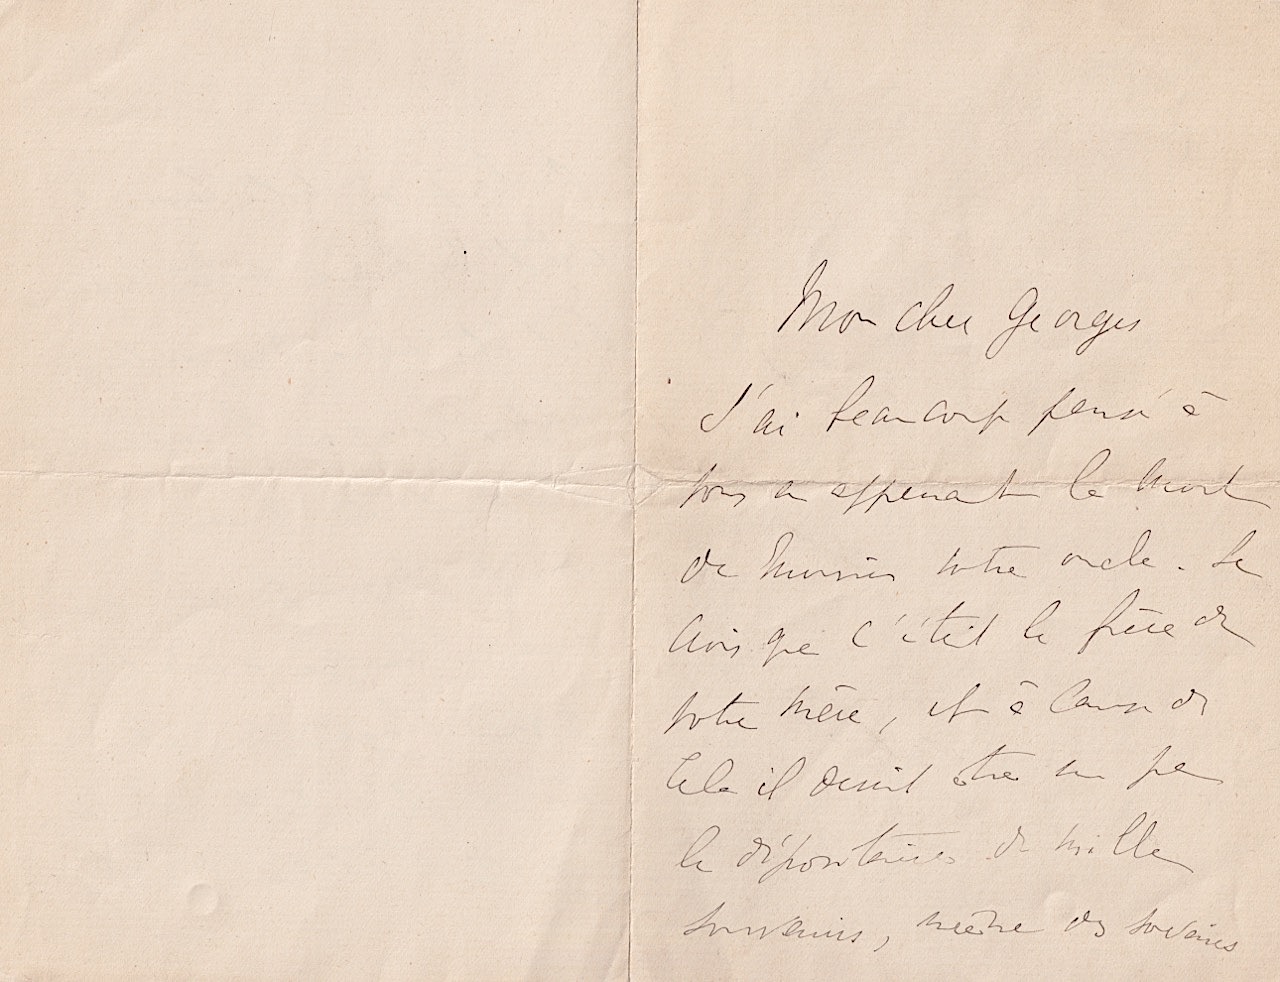 Mon cher Georges
J'ai beaucoup pensé à
vous en apprenant la mort
de Monsieur votre oncle. Je
crois que c'était le frère de
votre mère, et à cause de
cela il devait être un peu
le dépositaire de mille
souvenirs, même des souvenirs